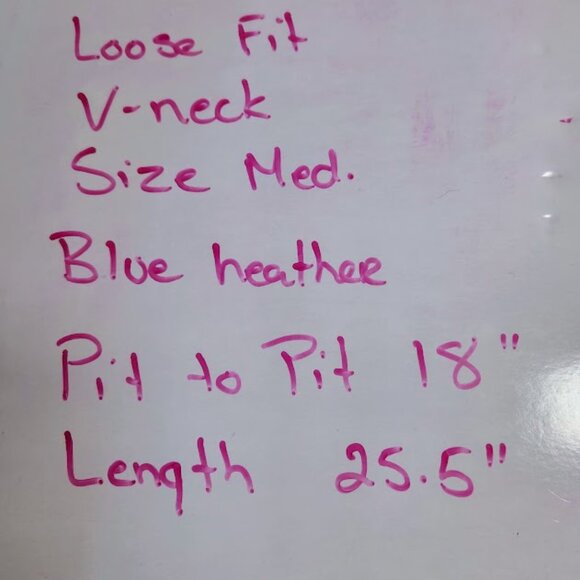 Loose Fit
V-neck
Size Med.
Blue heather
Pit to Pit 18"
Length 25.5"